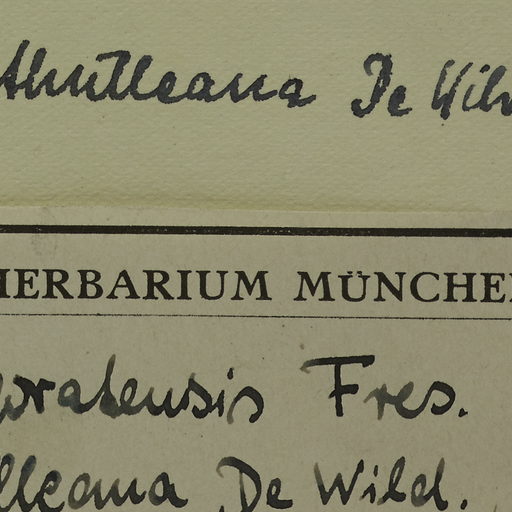 thulleana De Wild
HERBARIUM MÜNCHEN
oratensis Fres.
lleana De Wild.